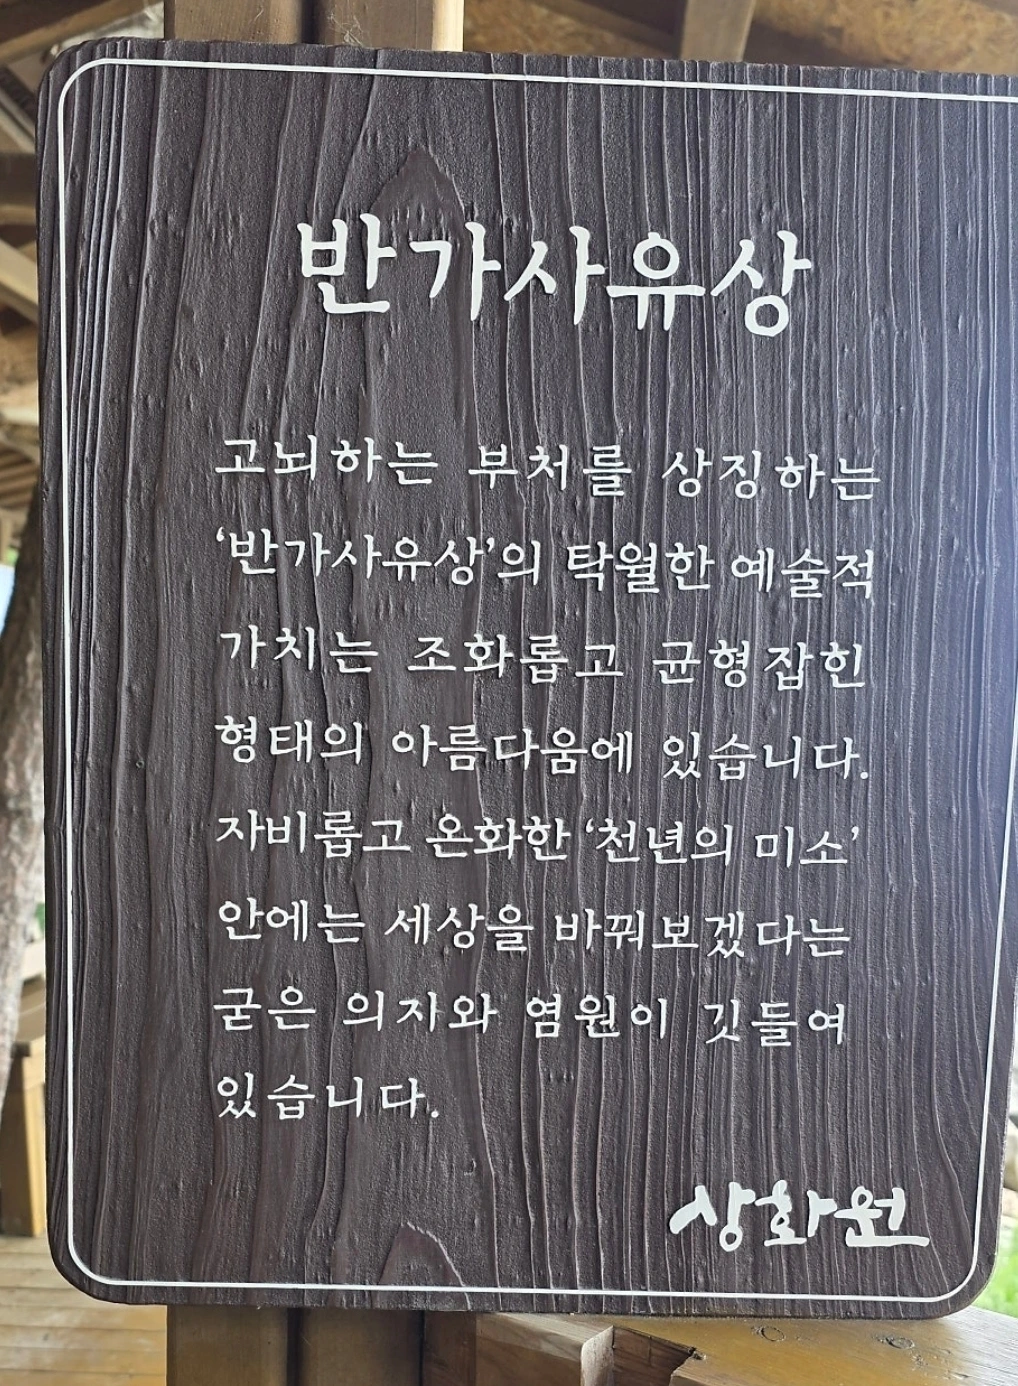 반가사유상
고뇌하는 부처를 상징하는
‘반가사유상’의 탁월한 예술적
가치는 조화롭고 균형잡힌
형태의 아름다움에 있습니다.
자비롭고 온화한 ‘천년의 미소’
안에는 세상을 바꿔보겠다는
굳은 의자와 염원이 깃들여
있습니다.
상화원